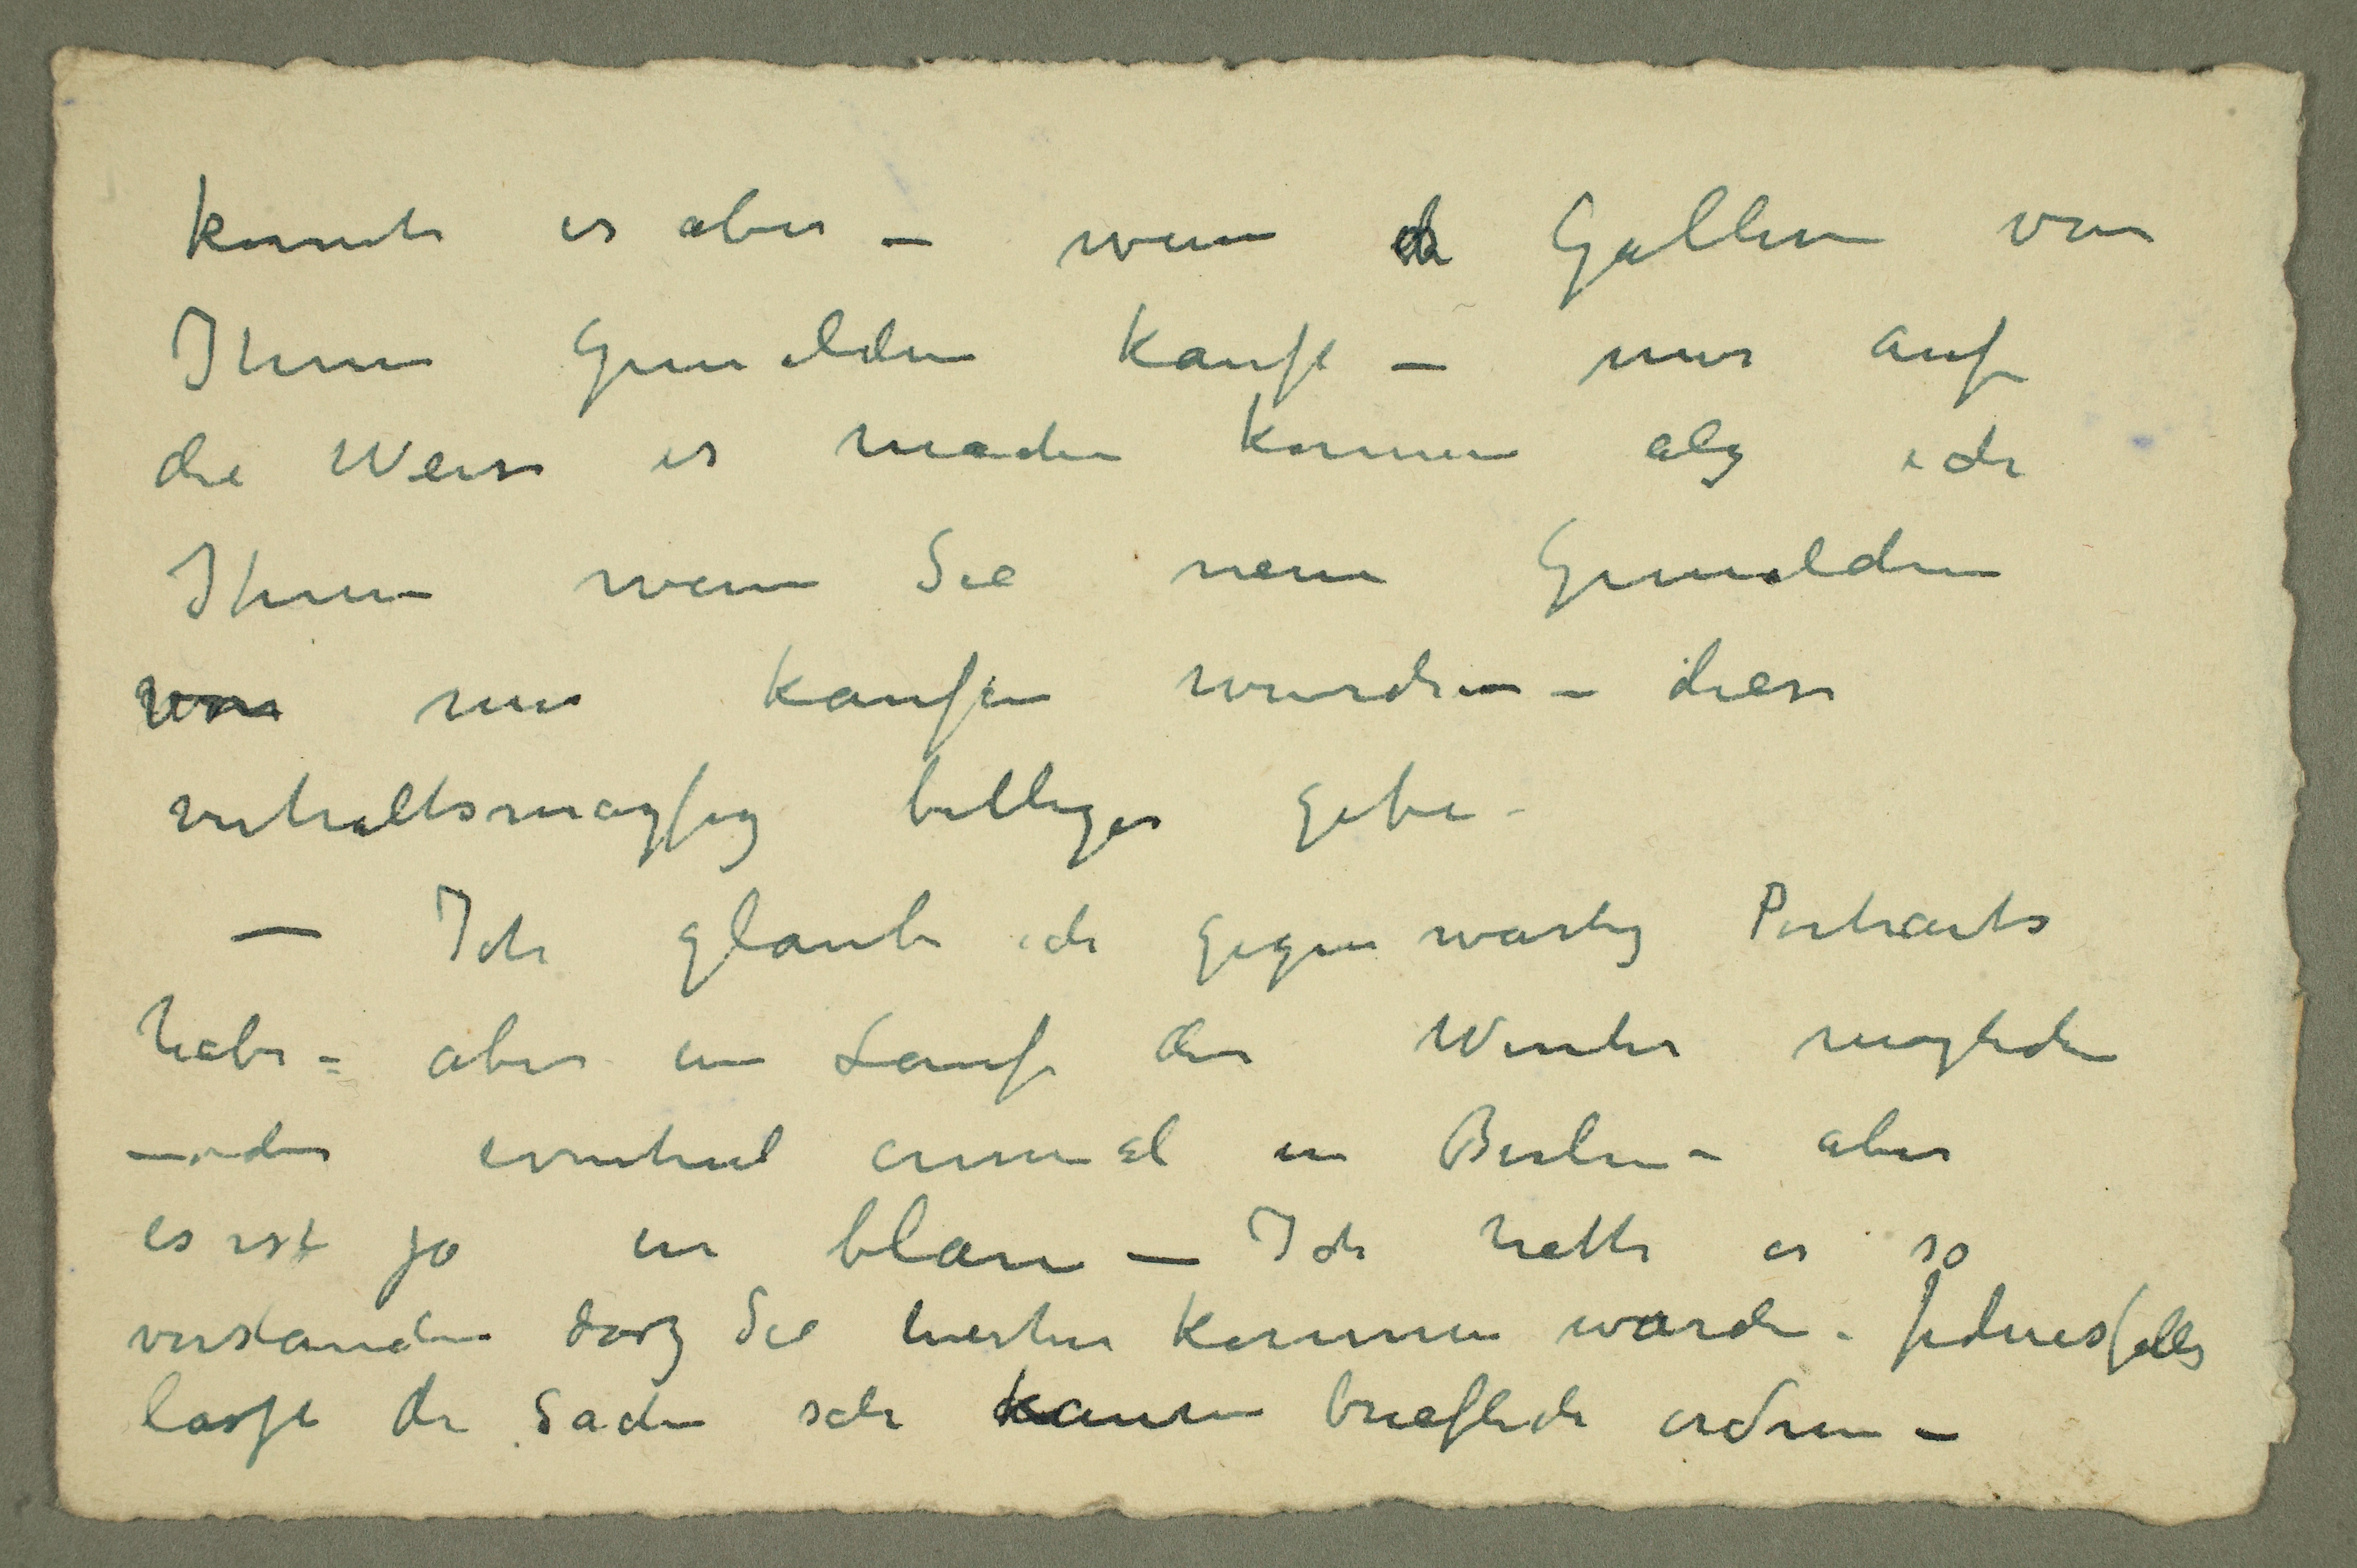 konnte es aber — wenn die Gallerie von
Ihnen Gemälden kauft — nur auf
die Weise es machen können als ich
Ihnen wenn Sie neue Gemälden
von mir kaufen wurden – diese
verhältsmaszig billiger gebe –
— Ich glaube ich gegenwartig Portraits
habe = aber im Laufe der Winter moglichen
— oder eventuel einmal in Berlin – aber
es ist ja im blauen — Ich hatte es so
verstanden dasz Sie hierher kommen wurde – jedenesfalls
lasst die Sachen sich kaum brieflich ordnen —